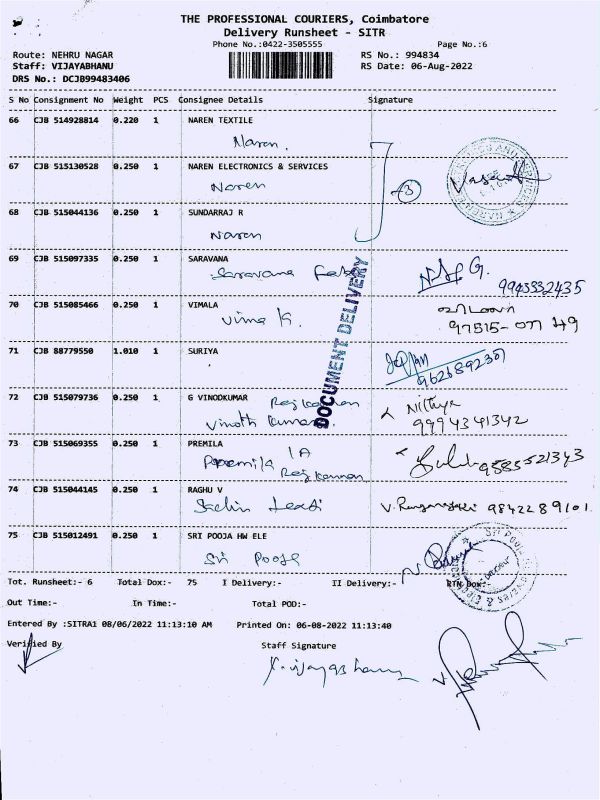 THE PROFESSIONAL COURIERS, Coimbatore
Delivery Runsheet - SITR
Phone No.:0422-3505555 Page No.:6
Route: NEHRU NAGAR RS No.: 994834
Staff: VIJAYABHANU RS Date: 06-Aug-2022
DRS No.: DCJB99483406
S No Consignment No Weight PCS Consignee Details Signature
66 CJB 514928814 0.220 1 NAREN TEXTILE
Naren.
67 CJB 515130528 0.250 1 NAREN ELECTRONICS & SERVICES
Naren
3
68 CJB 515044136 0.250 1 SUNDARRAJ R
Naren
69 CJB 515097335 0.250 1 SARAVANA
Saravana
DOCUMENT DELIVERY
70 CJB 515085466 0.250 1 VIMALA
Vima K.
71 CJB 88779550 1.010 1 SURIYA
72 CJB 515079736 0.250 1 G VINODKUMAR Rajkannan
Vinoth Kumar. Nithya
9994341342
73 CJB 515069355 0.250 1 PREMILA IA
Premila Rajkannan 9585521343
74 CJB 515044145 0.250 1 RAGHU V
9842289101
75 CJB 515012491 0.250 1 SRI POOJA HW ELE
Sri Pooja
Tot. Runsheet:- 6 Total Dox:- 75 I Delivery:- II Delivery:- RTN Dox:-
Out Time:- In Time:- Total POD:-
Entered By :SITRA1 08/06/2022 11:13:10 AM Printed On: 06-08-2022 11:13:40
Verified By Staff Signature